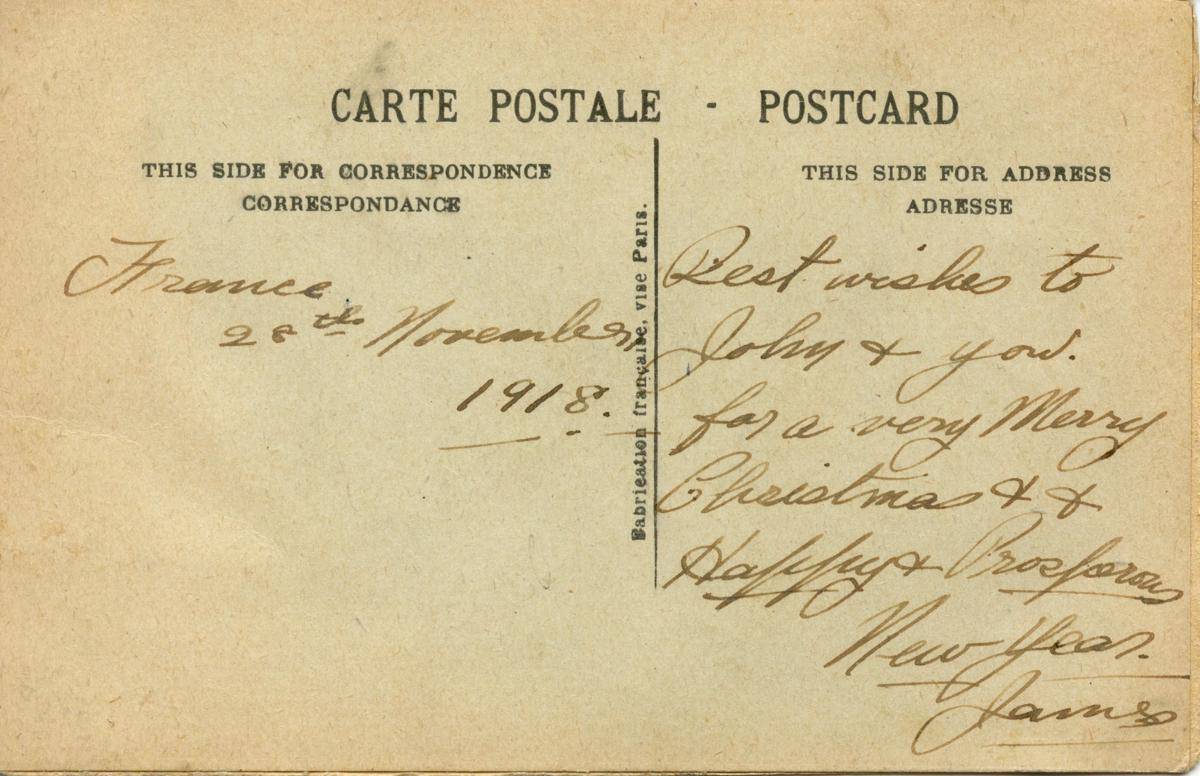 CARTE POSTALE - POSTCARD
THIS SIDE FOR CORRESPONDENCE
CORRESPONDANCE
France
28th November
1918.
Fabrication française, vise Paris.
THIS SIDE FOR ADDRESS
ADRESSE
Best wishes to
John & you.
for a very Merry
Christmas & &
Happy & Prosperous
New Year.
James